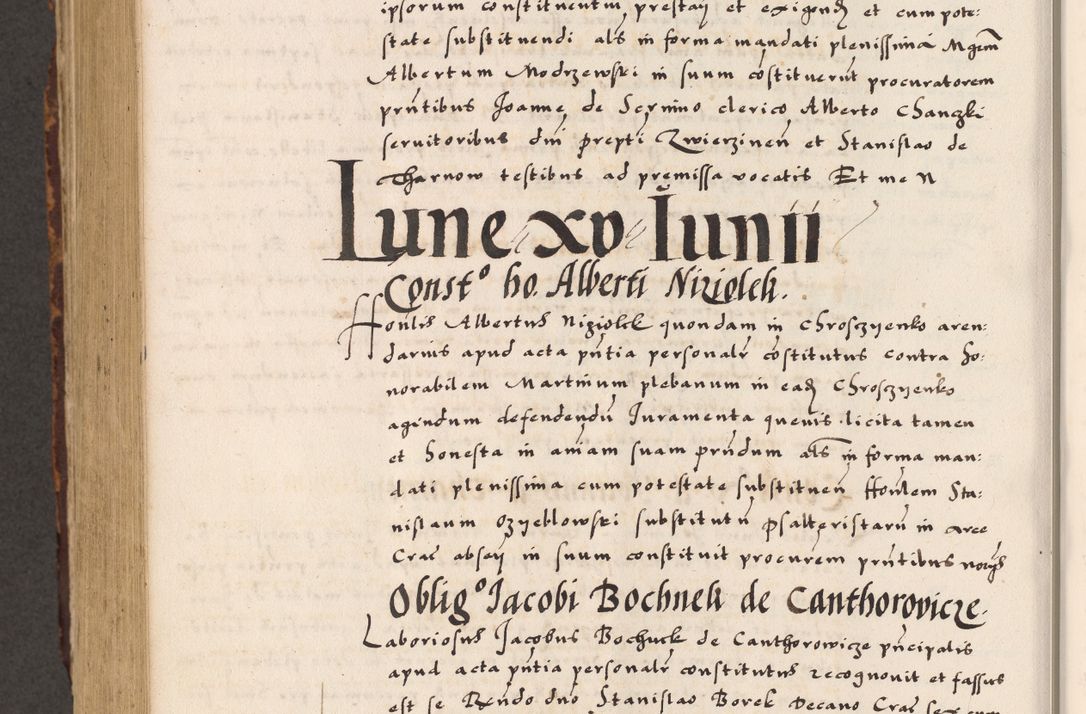 ipsorum constituentium prestari et exigendi et cum pote:
state substituendi als in forma mandati plenissima Mgrm
Albertum Modrzewski in suum cōstituerūt procuratorem
prntibus Joanne de Scrnino clerico Alberto Chanczki
seruitoribus dni prepti Zwierzineñ et Stanislao de
Tharnow testibus ad premissa vocatis Et me N
Lune xv Iunii
Constº ho. Alberti Niziolek.
Honlis Albertus Niziolek quondam in Chrosczyenko aren:
darius apud acta pntia personalr cōstitutus contra ho:
norabilem Martinum plebanum in ead Chrosczyenko
agindum defendendū Iuramenta queuis licita tamen
et honesta in aniam suam prndum als in forma man:
dati plenissima cum potestate substitueñ Honlem Sta:
nislaum Ozyeblowski substitutū psalteristarū in arce
Crac absen in suum constituit procurem prntibus
Obligº Iacobi Bochnek de Canthorovicze.
Laboriosus Jacobus Bochnek de Canthorowicze pncipalis
apud acta pntia personalr constitutus recognouit et fassus
est se Rndo dno Stanislao Borek Decano Crac